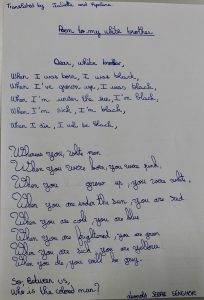 Translated by Juliette and
Poem to my white brother
Dear, white brother,
When I was born, I was black,
When I've grown up, I was black,
When I'm under the sun, I'm black,
When I'm sick, I'm black,
When I die, I'll be black,
Whereas you, white man
When you were born, you were pink,
When you grew up, you were white,
When you are under the sun, you are red
When you are cold, you are blue
When you are frightened, you are green
When you are sick, you are yellow
When you die, you will be grey.
So, Between us,
Who is the colored man?
Léopold SEDAR SENGHOR